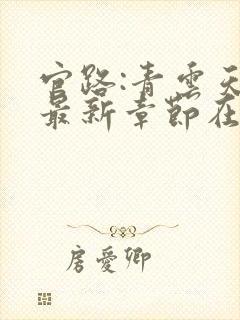 官路:青云天
最新章節在
房愛卿